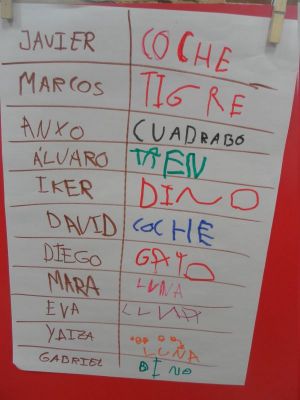 JAVIER COCHE
MARCOS TIGRE
ANXO CUADRADO
ÁLVARO TREN
IKER DINO
DAVID COCHE
DIEGO GATO
MARA LUNA
EVA LUNA
YAIZA LUNA
GABRIEL DINO